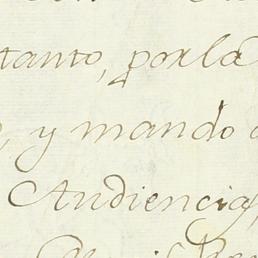 tanto, por la
y mando
Audiencia